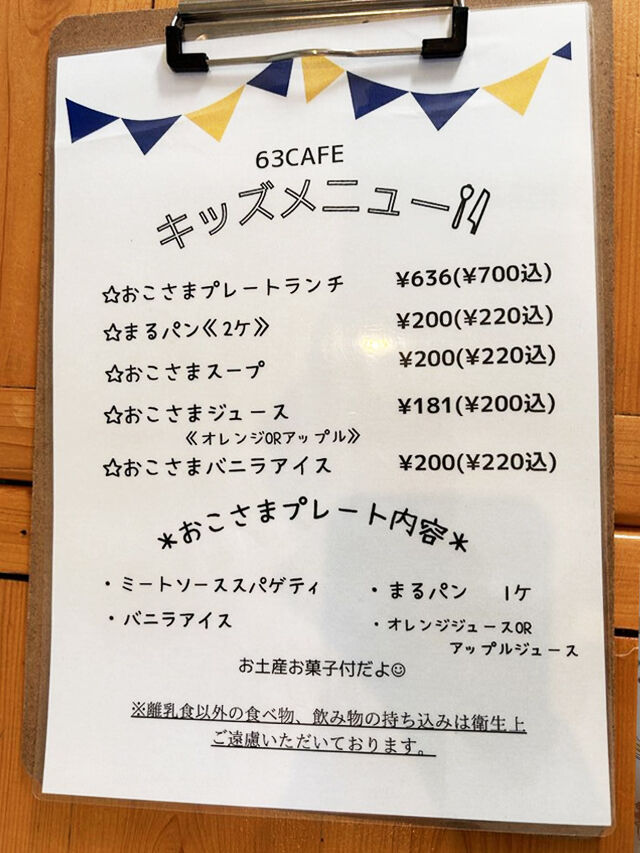 63CAFE
キッズメニュー
☆おこさまプレートランチ ¥636(¥700込)
☆まるパン《2ケ》 ¥200(¥220込)
☆おこさまスープ ¥200(¥220込)
☆おこさまジュース ¥181(¥200込)
《オレンジORアップル》
☆おこさまバニラアイス ¥200(¥220込)
*おこさまプレート内容*
・ミートソーススパゲティ ・まるパン 1ケ
・バニラアイス ・オレンジジュースOR
アップルジュース
お土産お菓子付だよ☺
※離乳食以外の食べ物、飲み物の持ち込みは衛生上
ご遠慮いただいております。